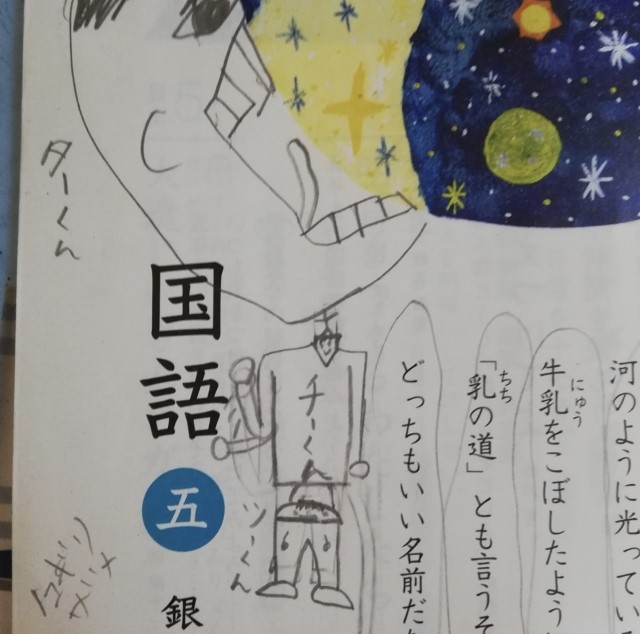 河のように光ってい
牛乳をこぼしたよう
にゅう
「乳の道」とも言うそ
ちち
どっちもいい名前だ
国語
五
銀
ターくん
チーくん
ツーくん